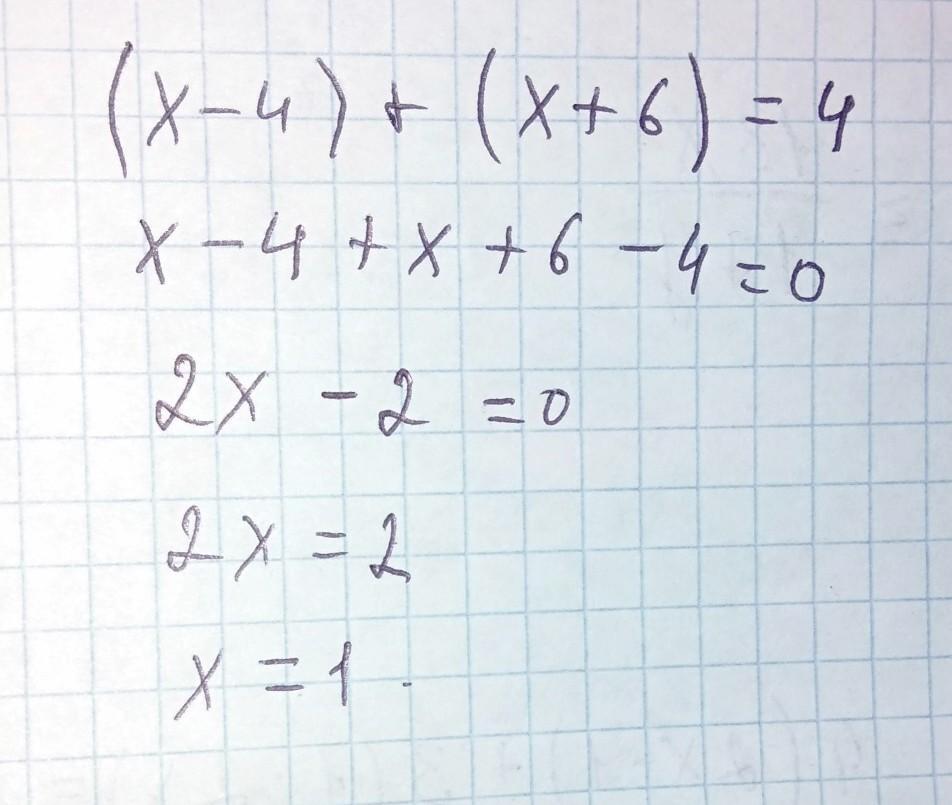 (x-4) + (x+6) = 4
x - 4 + x + 6 - 4 = 0
2x - 2 = 0
2x = 2
x = 1.